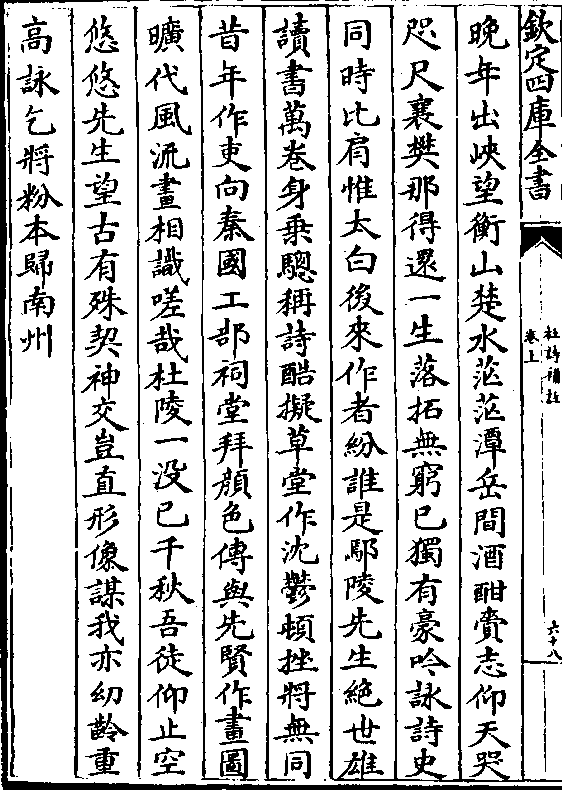 欽定四庫全書
杜詩補註
卷上
六十八
晚年出峽望衡山楚水茫茫潭岳間酒酣賫志仰天哭
咫尺襄樊那得還一生落拓無窮已獨有豪吟詠詩史
同時比肩惟太白後來作者紛誰是鄢陵先生絕世雄
讀書萬卷身乗驄稱詩酷擬草堂作沈鬱頓挫將無同
昔年作吏向秦國工部祠堂拜顔色傳與先賢作畫圖
曠代風流畫相識嗟哉杜陵一没已千秋吾徒仰止空
悠悠先生望古有殊契神交豈直形像謀我亦幼齡重
高詠乞將粉本歸南州